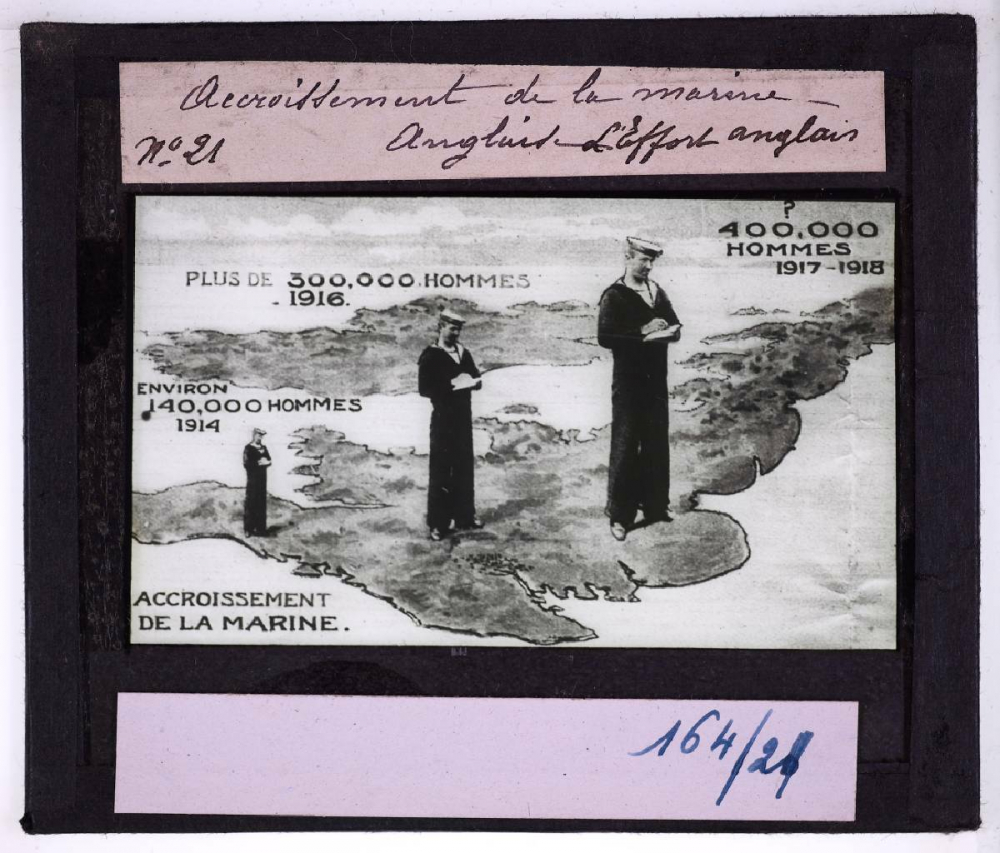 Accroissement de la marine –
Nº 21 Anglaise L'Effort anglais
?
400,000
HOMMES
1917-1918
PLUS DE 300,000 HOMMES
- 1916.
ENVIRON
140,000 HOMMES
1914
ACCROISSEMENT
DE LA MARINE.
164/21